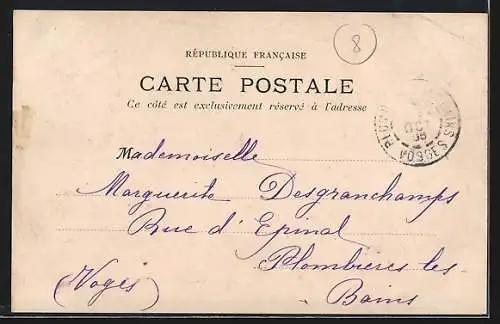 8
RÉPUBLIQUE FRANÇAISE
CARTE POSTALE
Ce côté est exclusivement réservé à l'adresse
VOSGES
Mademoiselle
Marguerite Desgranchamps
Rue d'Epinal
Plombières les
(Voges)
Bains